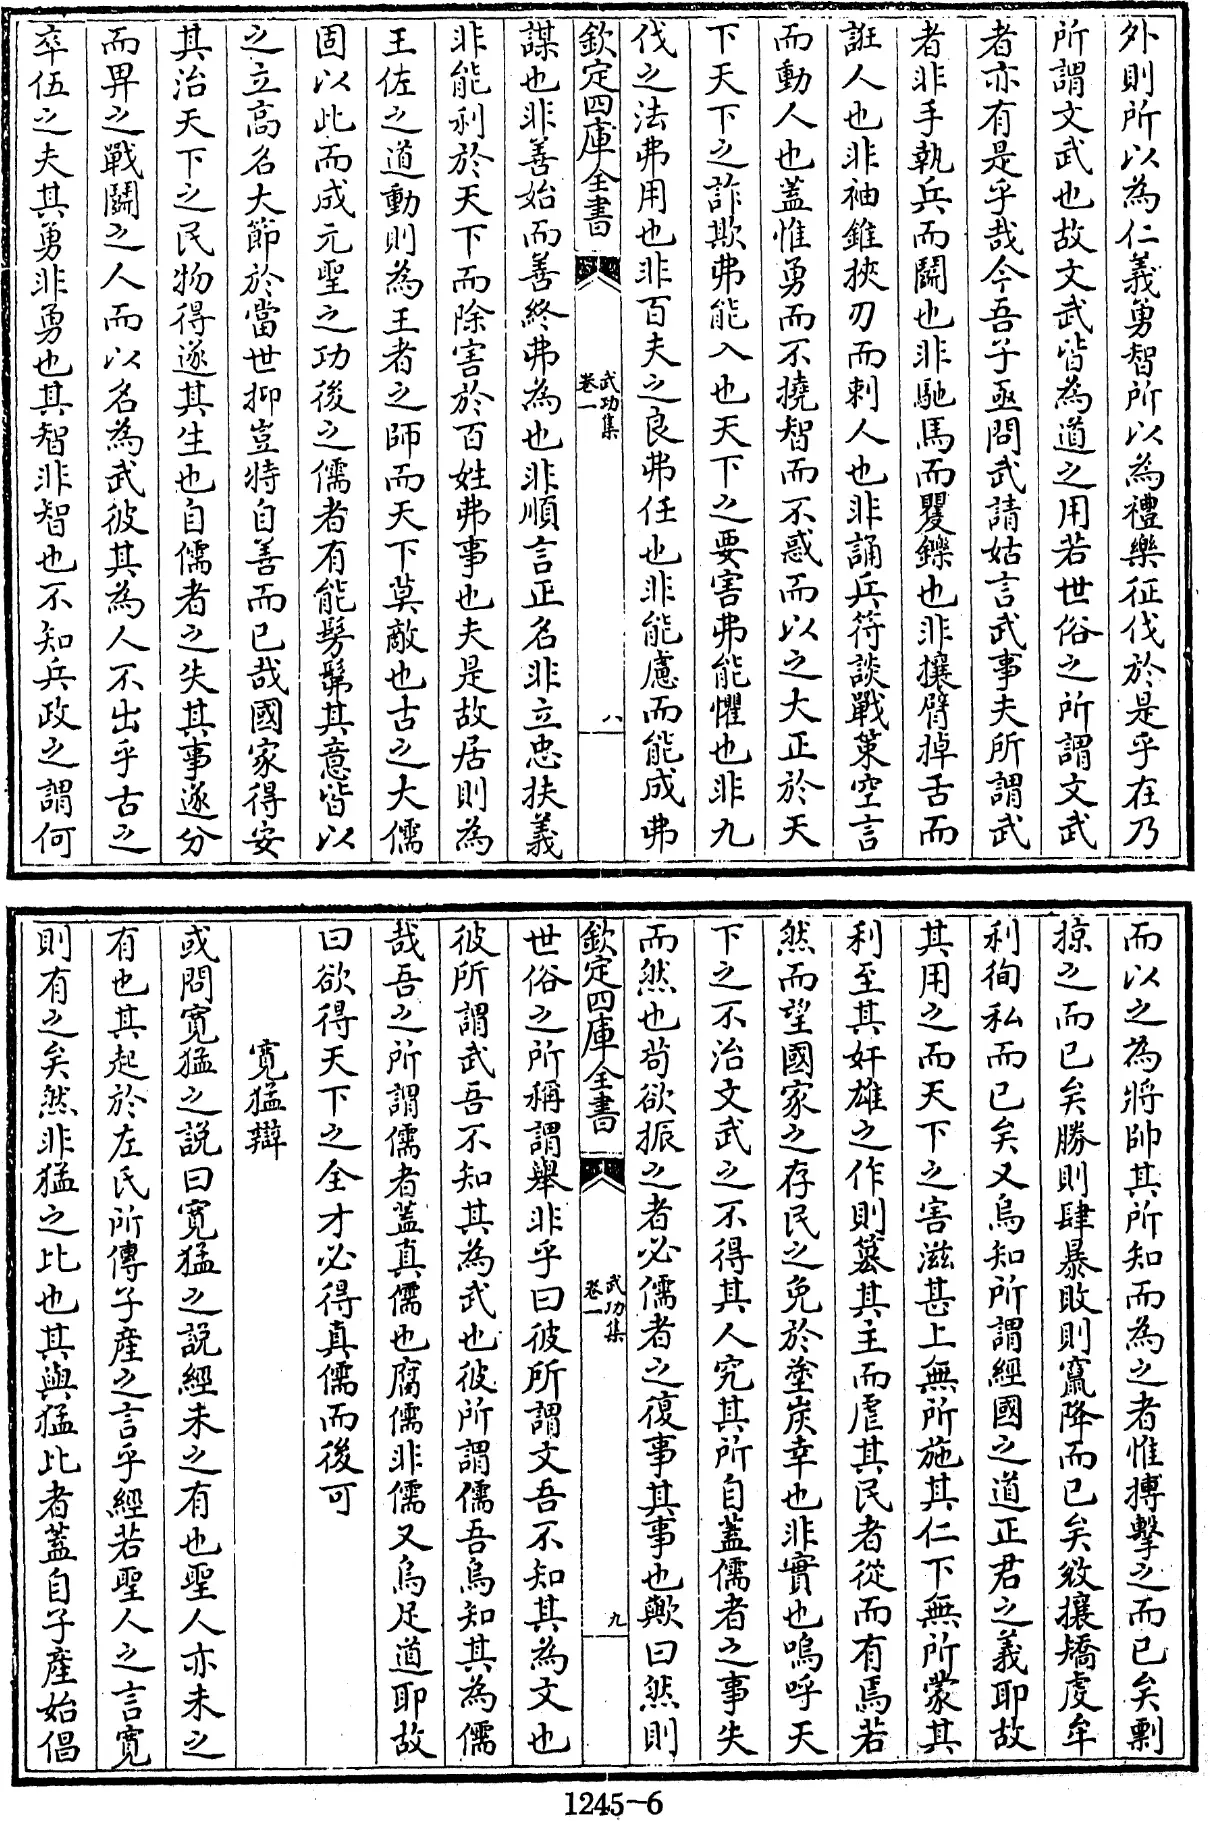 外則所以為仁義勇智所以為禮樂征伐於是乎在乃
所謂文武也故文武皆為道之用若世俗之所謂文武
者亦有是乎哉今吾子亟問武請姑言武事夫所謂武
者非手執兵而鬭也非馳馬而矍鑠也非攘臂掉舌而
誑人也非袖錐挾刃而刺人也非誦兵符談戰策空言
而動人也蓋惟勇而不撓智而不惑而以之大正於天
下天下之詐欺弗能入也天下之要害弗能懼也非九
伐之法弗用也非百夫之良弗任也非能慮而能成弗
欽定四庫全書
武功集
卷一
八
謀也非善始而善終弗為也非順言正名非立忠扶義
非能利於天下而除害於百姓弗事也夫是故居則為
王佐之道動則為王者之師而天下莫敵也古之大儒
固以此而成元聖之功後之儒者有能髣髴其意皆以
之立高名大節於當世抑豈特自善而已哉國家得安
其治天下之民物得遂其生也自儒者之失其事遂分
而畀之戰鬭之人而以名為武彼其為人不出乎古之
卒伍之夫其勇非勇也其智非智也不知兵政之謂何
而以之為將帥其所知而為之者惟搏擊之而已矣剽
掠之而已矣勝則肆暴敗則竄降而已矣敚攘矯虔牟
利徇私而已矣又烏知所謂經國之道正君之義耶故
其用之而天下之害滋甚上無所施其仁下無所蒙其
利至其奸雄之作則簒其主而虐其民者從而有焉若
然而望國家之存民之免於塗炭幸也非實也嗚呼天
下之不治文武之不得其人究其所自蓋儒者之事失
而然也苟欲振之者必儒者之復事其事也歟曰然則
欽定四庫全書
武功集
卷一
九
世俗之所稱謂舉非乎曰彼所謂文吾不知其為文也
彼所謂武吾不知其為武也彼所謂儒吾烏知其為儒
哉吾之所謂儒者蓋真儒也腐儒非儒又烏足道耶故
曰欲得天下之全才必得真儒而後可
寛猛辯
或問寛猛之說曰寛猛之說經未之有也聖人亦未之
有也其起於左氏所傳子產之言乎經若聖人之言寛
則有之矣然非猛之比也其與猛比者蓋自子產始倡
1245-6